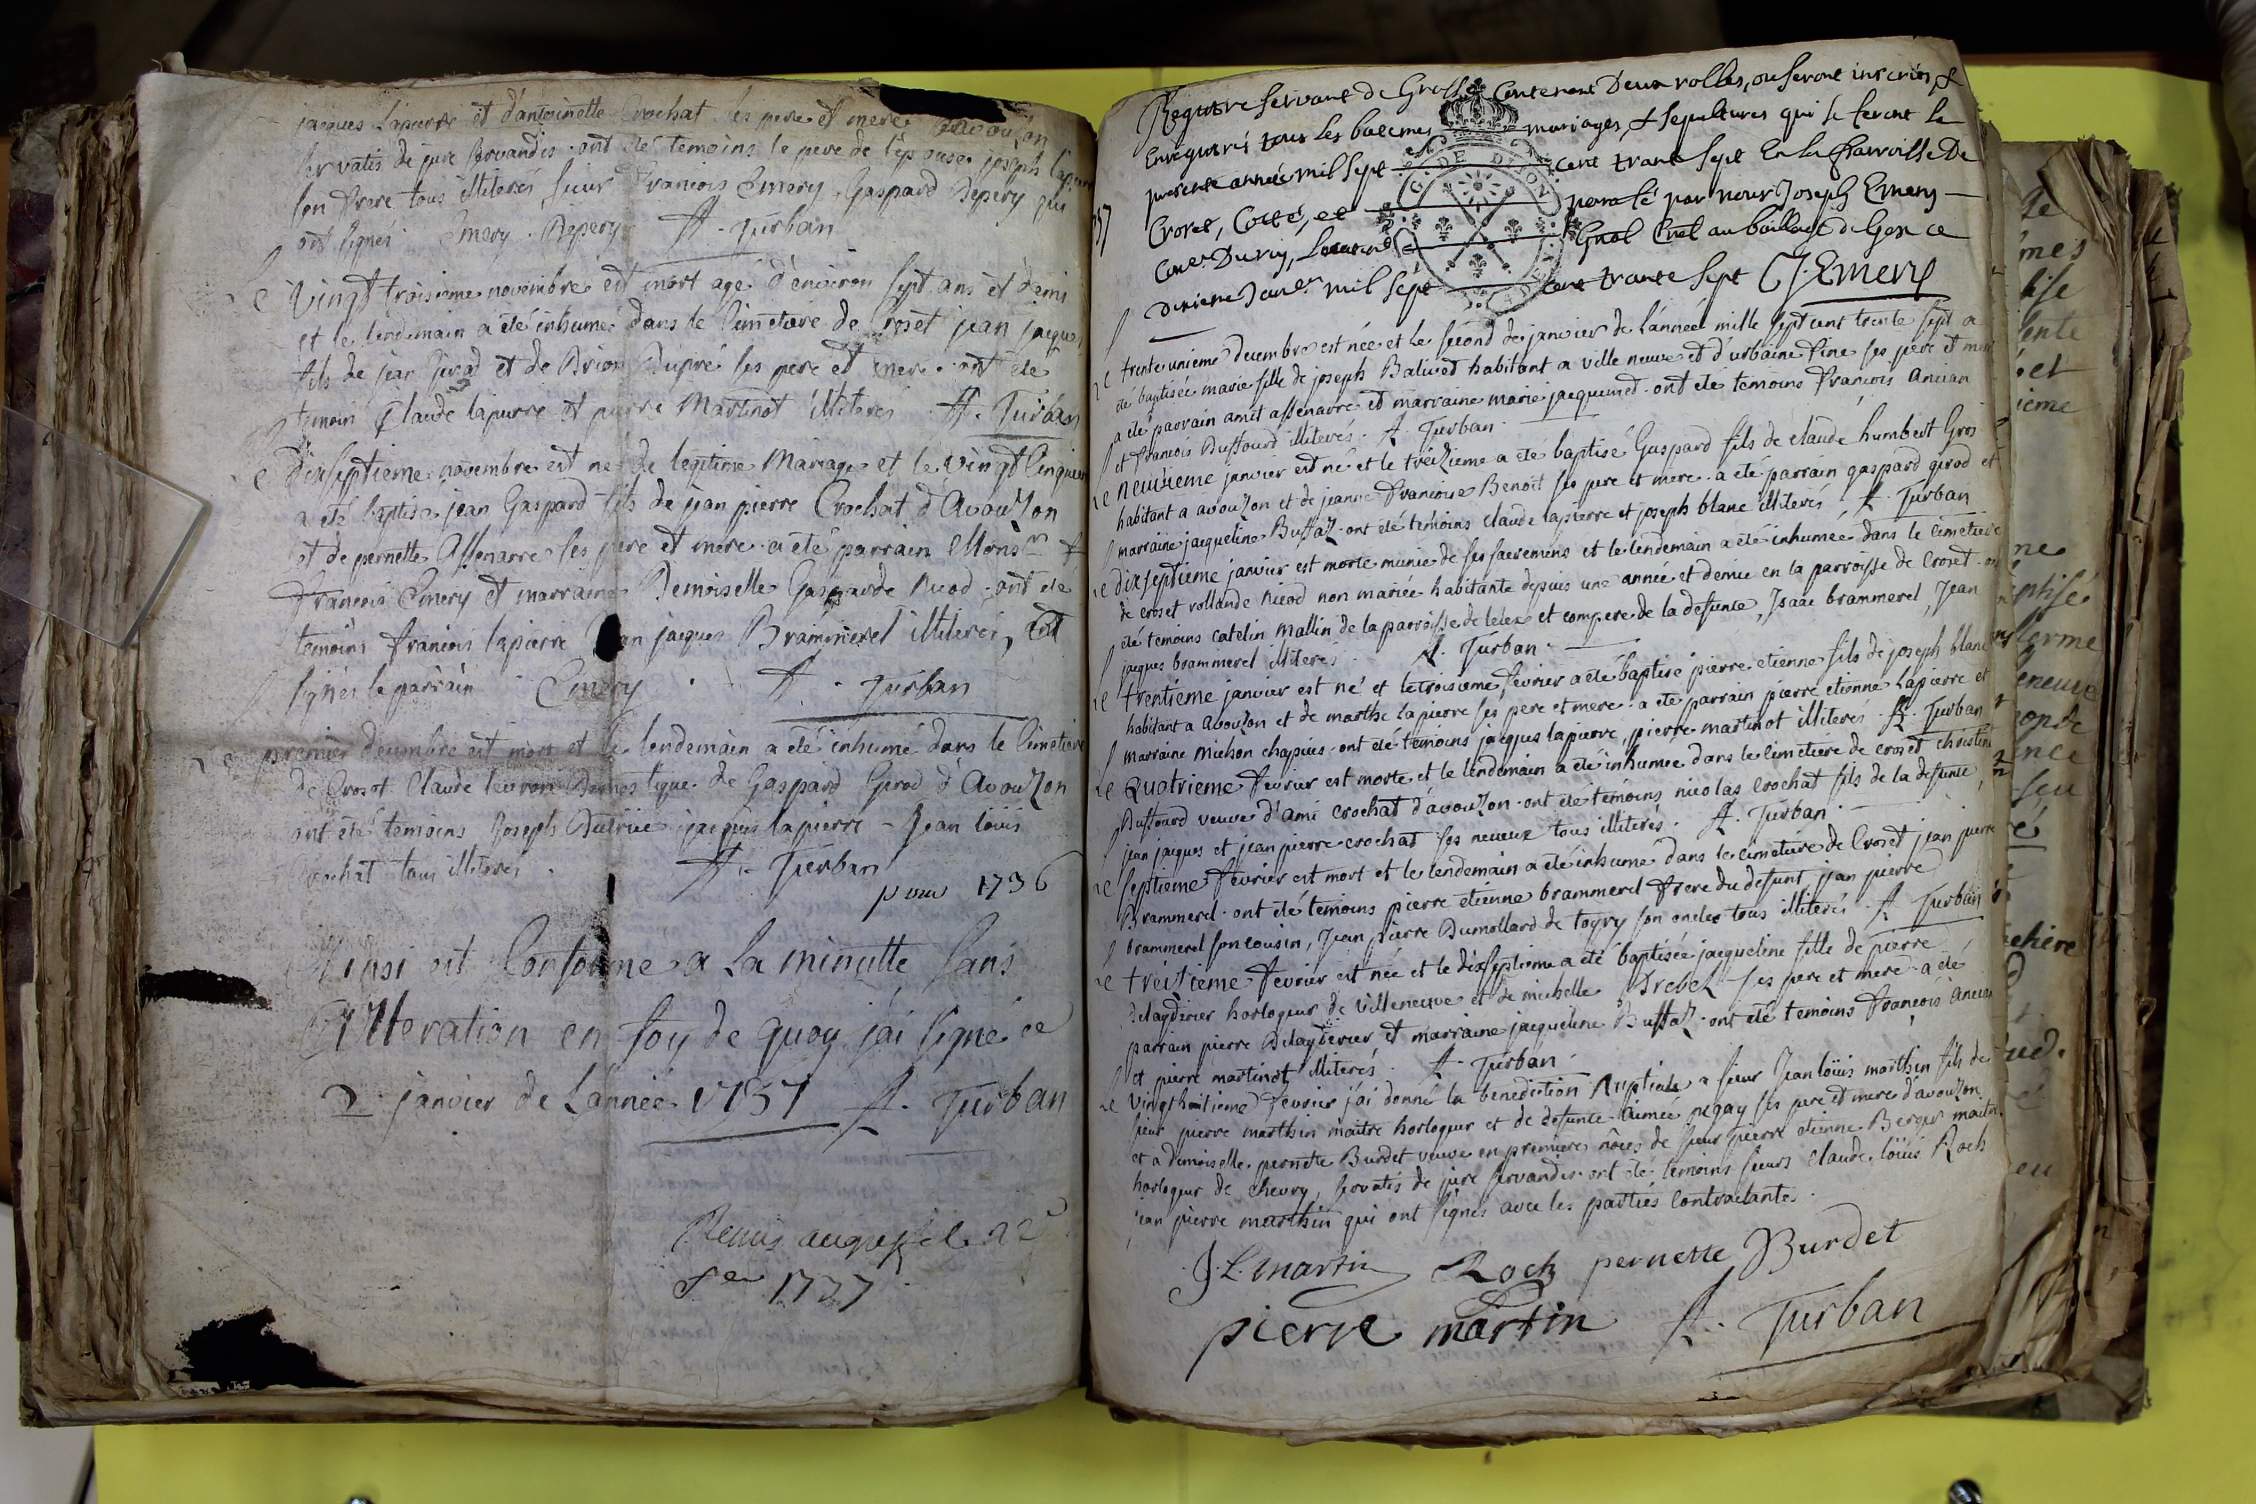 jacques Lapierre et d'antoinette Crochat ses pere et mere d'avouzon
servatis de jure servandis. ont été temoins le pere de l'epouse, joseph lapierre
son frere tous illiterés, sieur francois Emery, Gaspard Depery qui
ont signés. Emery. Depery. A. Turban
Le vingt troisieme novembre est mort agé d'environ sept ans et demi
et le lendemain a été inhumé dans le cimetiere de Croset jean jacques
fils de jean Girod et de Dupré ses pere et mere. ont été
temoin Claude lapierre et pierre Martinot illiterés. A. Turban
Le dixseptieme novembre est né de legitime Mariage et le vingt cinquieme
a été baptisé jean Gaspard fils de jean pierre Crochat d'Avouzon
et de pernette Assenarre ses pere et mere. a été parrain Monsr
francois Emery et marraine Demoiselle Gasparde Nicod. ont été
temoins francois lapierre jean jacques Brammerel illiterés,
signés le parrain. Emery. A. Turban
Le premier decembre est mort et le lendemain a été inhumé dans le Cimetiere
de Croset Claude levron Domestique de Gaspard Girod d'Avouzon
ont été temoins Joseph Dutruë jacques lapierre - Jean loüis
Crochat tous illiterés. A. Turban
pour 1736
Ainsi est Conforme a la minutte sans
Alteration en foy de quoy j'ai signé ce
2 janvier de l'année 1737 A. Turban
Remis au greffe le 22
fer 1737
Registre servant de Grosse Contenant Deux rolles, ou seront inscries, &
Enregistrés tous les batemes mariages, & sepultures qui se feront la
presente année mil sept cent trante sept En la Parroisse De
Croset, Cotté, et parafé par nous Joseph Emery
Conr. Du roy, Lieutenent Gnal Civil au bailliage de Gex ce
Janer. mil sept cent trante sept CJ. Emery
737
C. DE DIJON
Le trente unieme decembre est née et le second de janvier de l'année mille sept cent trente sept a
été baptisée marie fille de joseph Balived habitant a ville neuve et d'urbaine fine ses pere et mere
a été parrain amit assenarre et marraine marie jacquemed. ont été temoins francois ancian
et francois Buffourd illiterés. A. Turban.
Le neuvieme janvier est né et le treizieme a été baptisé Gaspard fils de claude humbert Gros
habitant a avouzon et de jeanne francoise Benoit ses pere et mere. a été parrain gaspard girod et
marraine jacqueline Buffaz. ont été temoins claude lapierre et joseph blanc illiterés. A. Turban
Le dixseptieme janvier est morte munie de ses sacremens et le lendemain a été inhumée dans le cimetiere
de croset rollande nicod non mariée habitante depuis une année et demie en la parroisse de Croset. ont
été temoins catelin mallin de la parroisse de lelex et compere de la defunte, Isaac brammerel, Jean
jacques brammerel illiterés. A. Turban.
Le trentieme janvier est né et le troisieme fevrier a été baptisé pierre etienne fils de joseph blanc
habitant a avouzon et de marthe lapierre ses pere et mere. a été parrain pierre etienne lapierre et
marraine michon chapuis. ont été temoins jacques lapierre, pierre martinot illiterés. A. Turban
Le quatrieme fevrier est morte et le lendemain a été inhumée dans le cimetiere de croset christine
Buffourd veuve d'ami crochat d'avouzon. ont été temoins nicolas crochat fils de la defunte,
jean jacques et jean pierre crochat ses neveux tous illiterés. A. Turban.
Le septieme fevrier est mort et le lendemain a été inhumé dans le cimetiere de Croset jean pierre
Brammerel. ont été temoins pierre etienne brammerel frere du defunt jean pierre
brammerel son cousin, Jean pierre Dumollard de togny son oncle tous illiterés. A. Turban
Le treizieme fevrier est née et le dixseptieme a été baptisée jacqueline fille de pierre
Delaydevier horlogeur de villeneuve et de michelle Drebez ses pere et mere. a été
parrain pierre Delaydevier et marraine jacqueline Buffaz. ont été temoins francois ancian
et pierre martinot illiterés. A. Turban.
Le vingthuitieme fevrier j'ai donné la benediction Nuptiale a sieur Jean loüis marthin fils de
sieur pierre marthin maitre horlogeur et de defunte Aimée pegay ses pere et mere d'avouzon
et a demoiselle pernette Burdet veuve en premieres nôces de sieur pierre etienne Berger maitre
horlogeur de chevry, servatis de jure servandis. ont été temoins sieurs claude loüis Roch
jean pierre marthin qui ont signés avec les parties Contractantes.
J. L. martin Roch pernette Burdet
pierre martin A. Turban